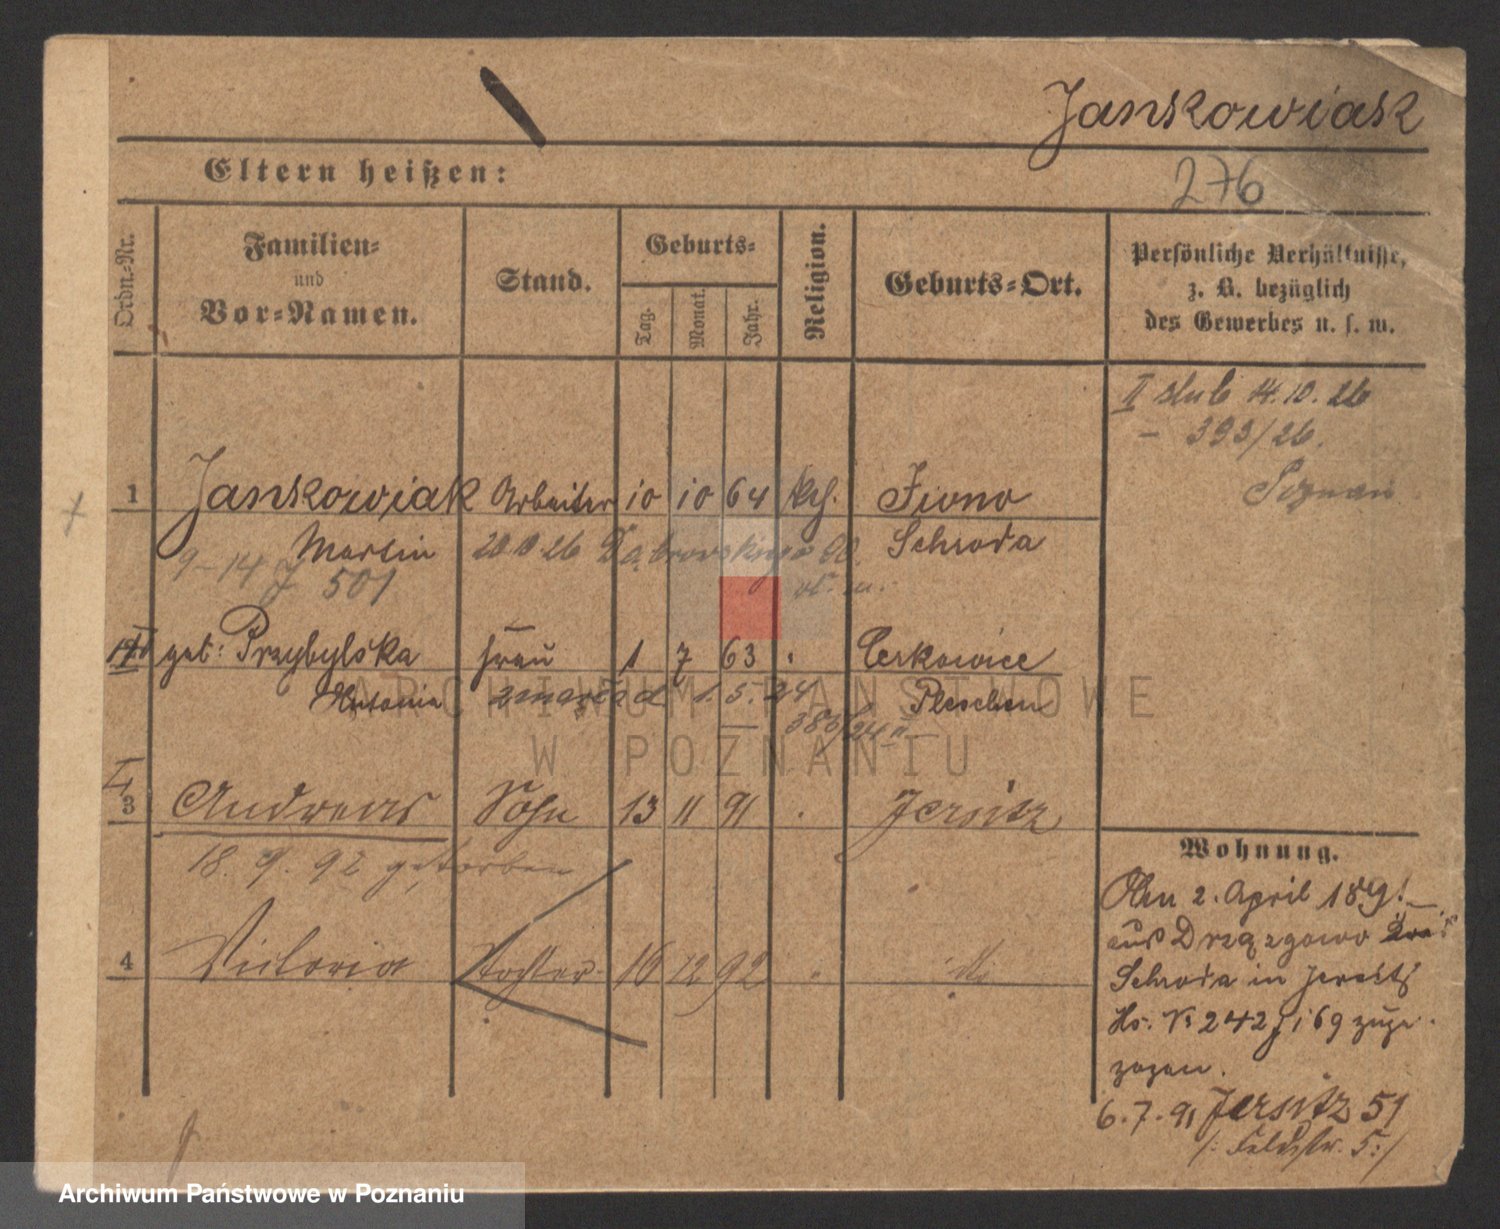 Jankowiak
Eltern heißen:
276
Ordn.-Nr.
Familien-
und
Vor-Namen.
Stand.
Geburts-
Tag.
Monat.
Jahr.
Religion.
Geburts-Ort.
Persönliche Verhältnisse,
z. B. bezüglich
des Gewerbes u. s. w.
II slub 14.10.26
– 393/26.
Poznań
1 Jankowiak Arbeiter 10 10 64 kath. Iwno
Martin 20 10 26 Dąbrowskiego 90. Schroda
9–14 J 501
geb: Przybylska Frau 1 7 63 Cerkwice
Antonia zmarła d. 1. 5. 24 Pleschen
383/24 II
I
3 Andreas Sohn 13 11 91 Jersitz
18. 9. 92 gestorben
4 Victoria Tochter 16 12 92
Wohnung.
Am 2. April 1891
aus Drzązgowo Krs
Schroda in Jersitz
Hs. № 242 J 169 zuge-
zogen.
6.7.91 Jersitz 51
/: Feldstr. 5:/
ARCHIWUM PAŃSTWOWE
W POZNANIU
Archiwum Państwowe w Poznaniu